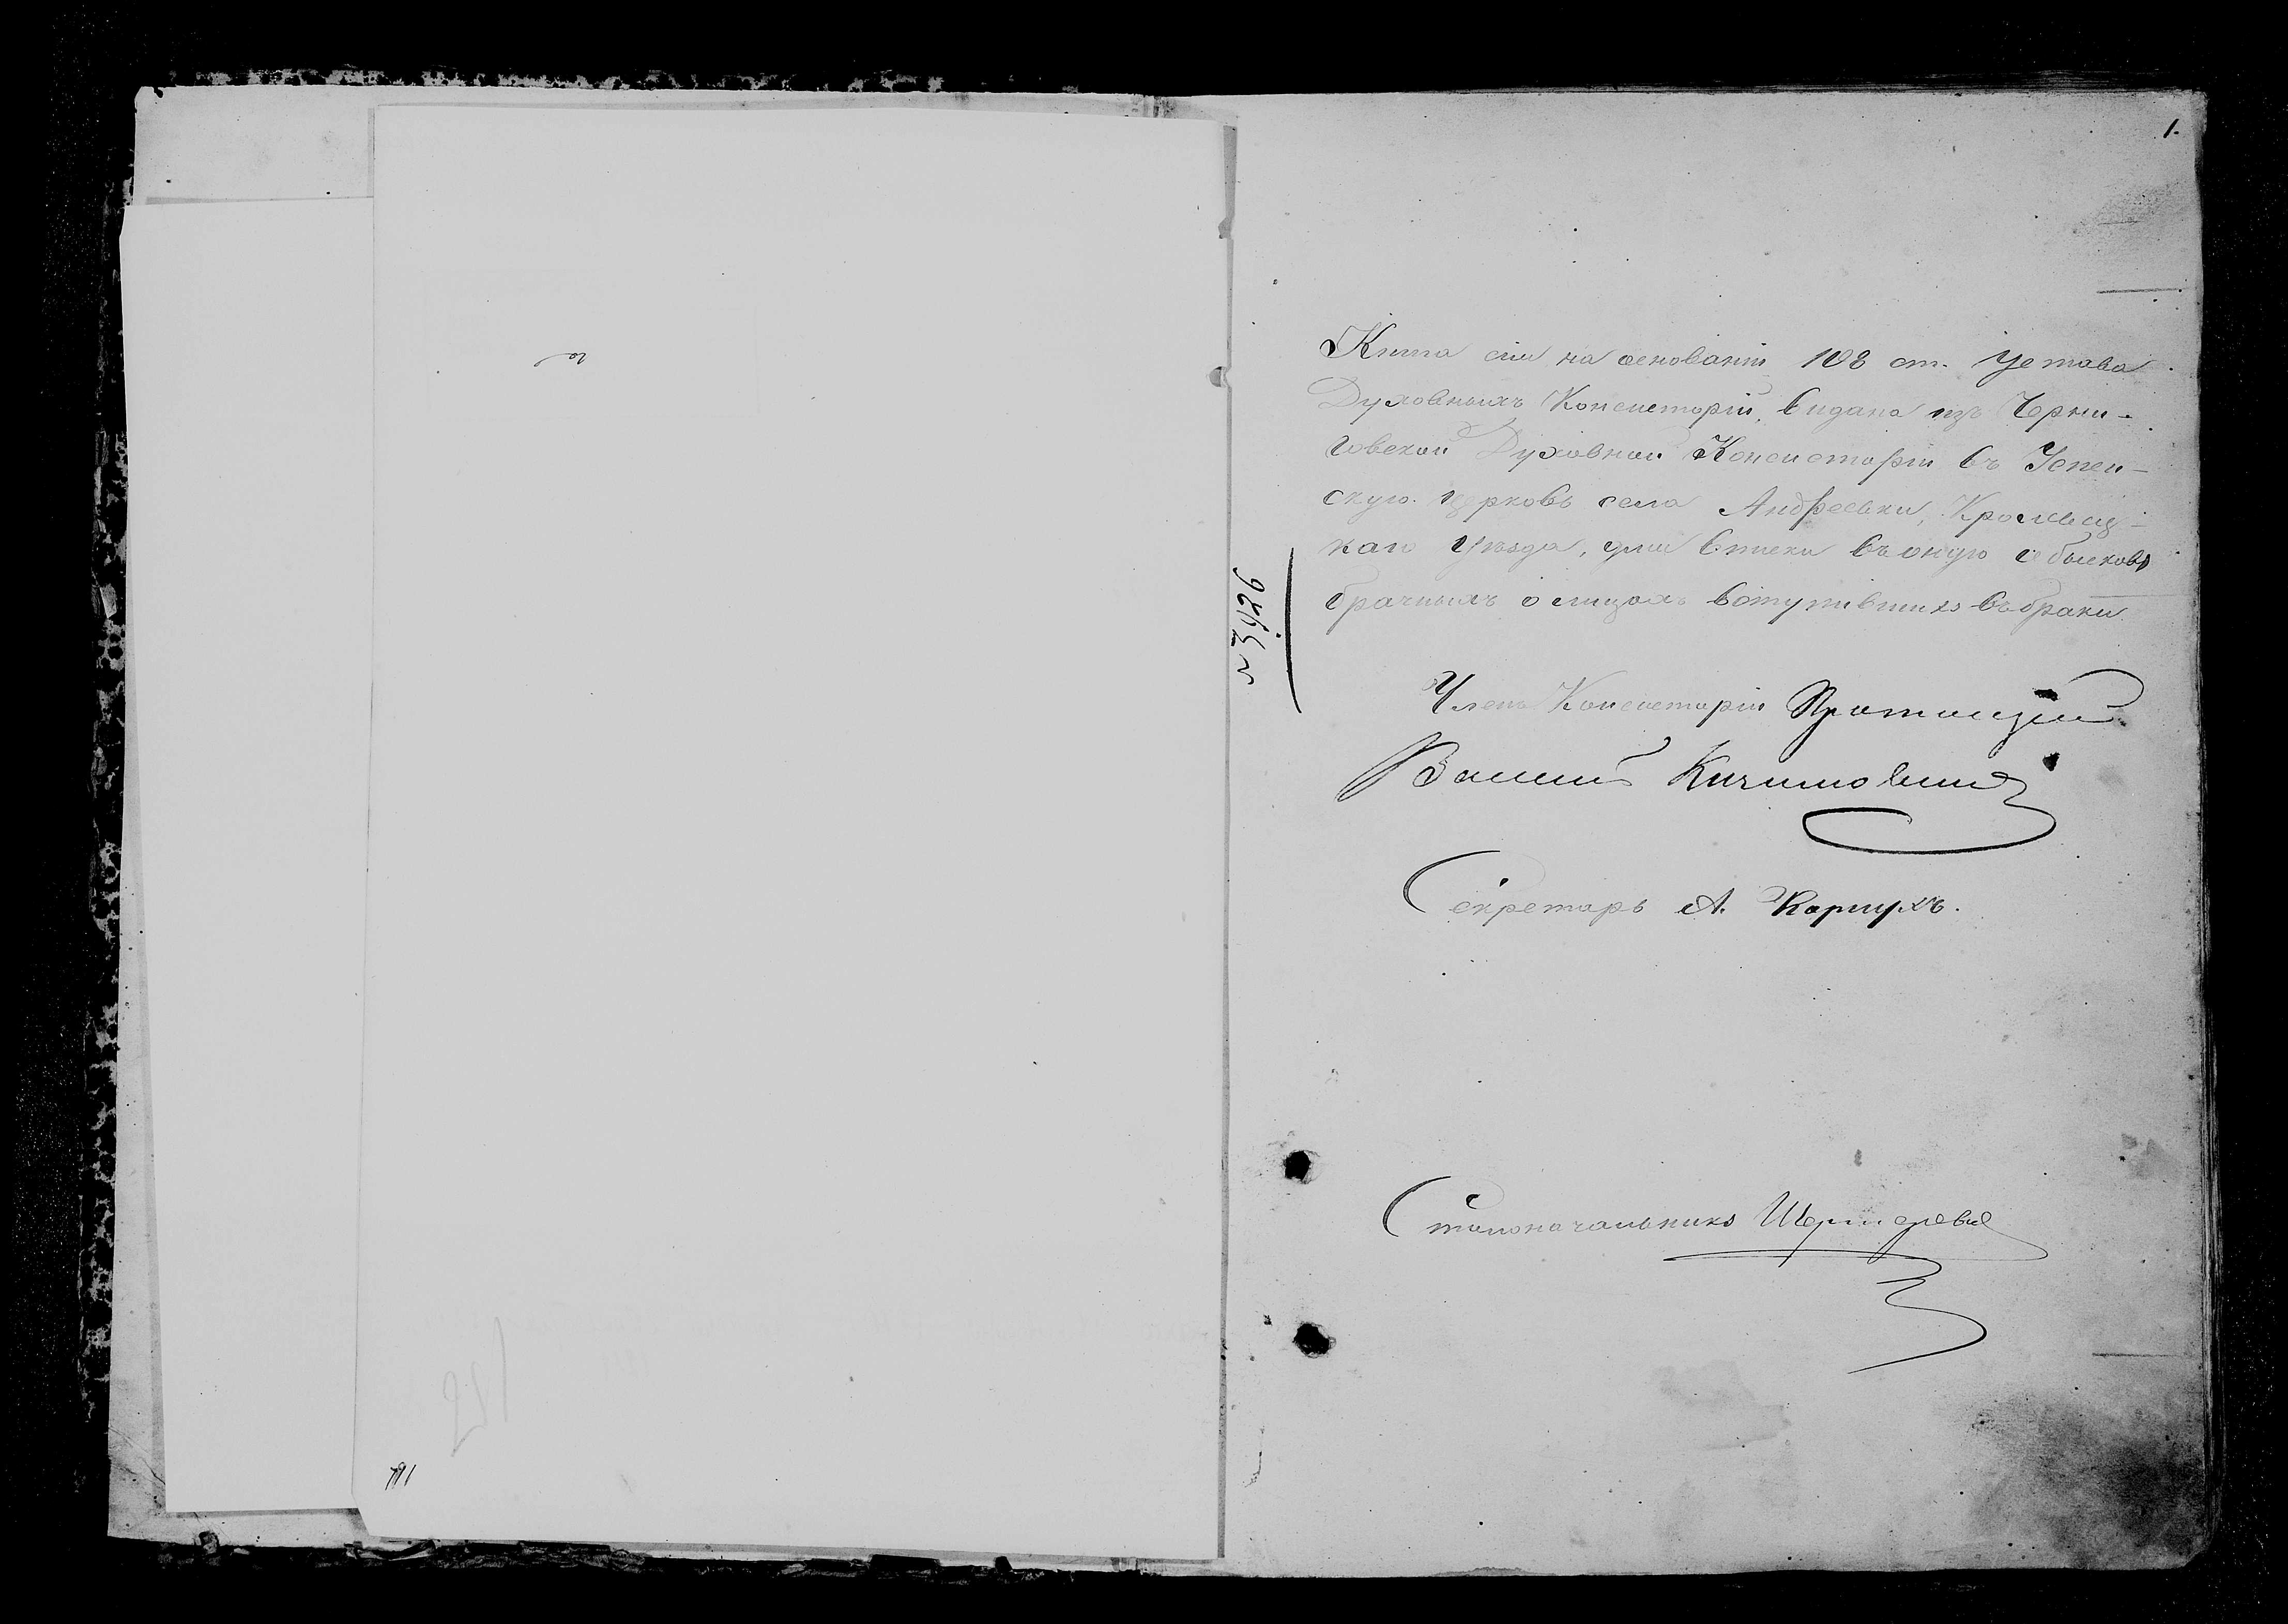 1.
Книга сія на основаніи 108 ст. Устава
Духовныхъ Консисторій, выдана изъ Черни-
говской Духовной Консисторіи въ Успен-
скую церковь села Андреевки, Кролевец-
каго уѣзда, для вписки въ оную обысковъ
брачныхъ о лицахъ вступившихъ въ браки
№ 3926
Членъ Консисторіи Протоіерей
Василій
Секретарь А. Карпухъ.
Столоначальникъ
251